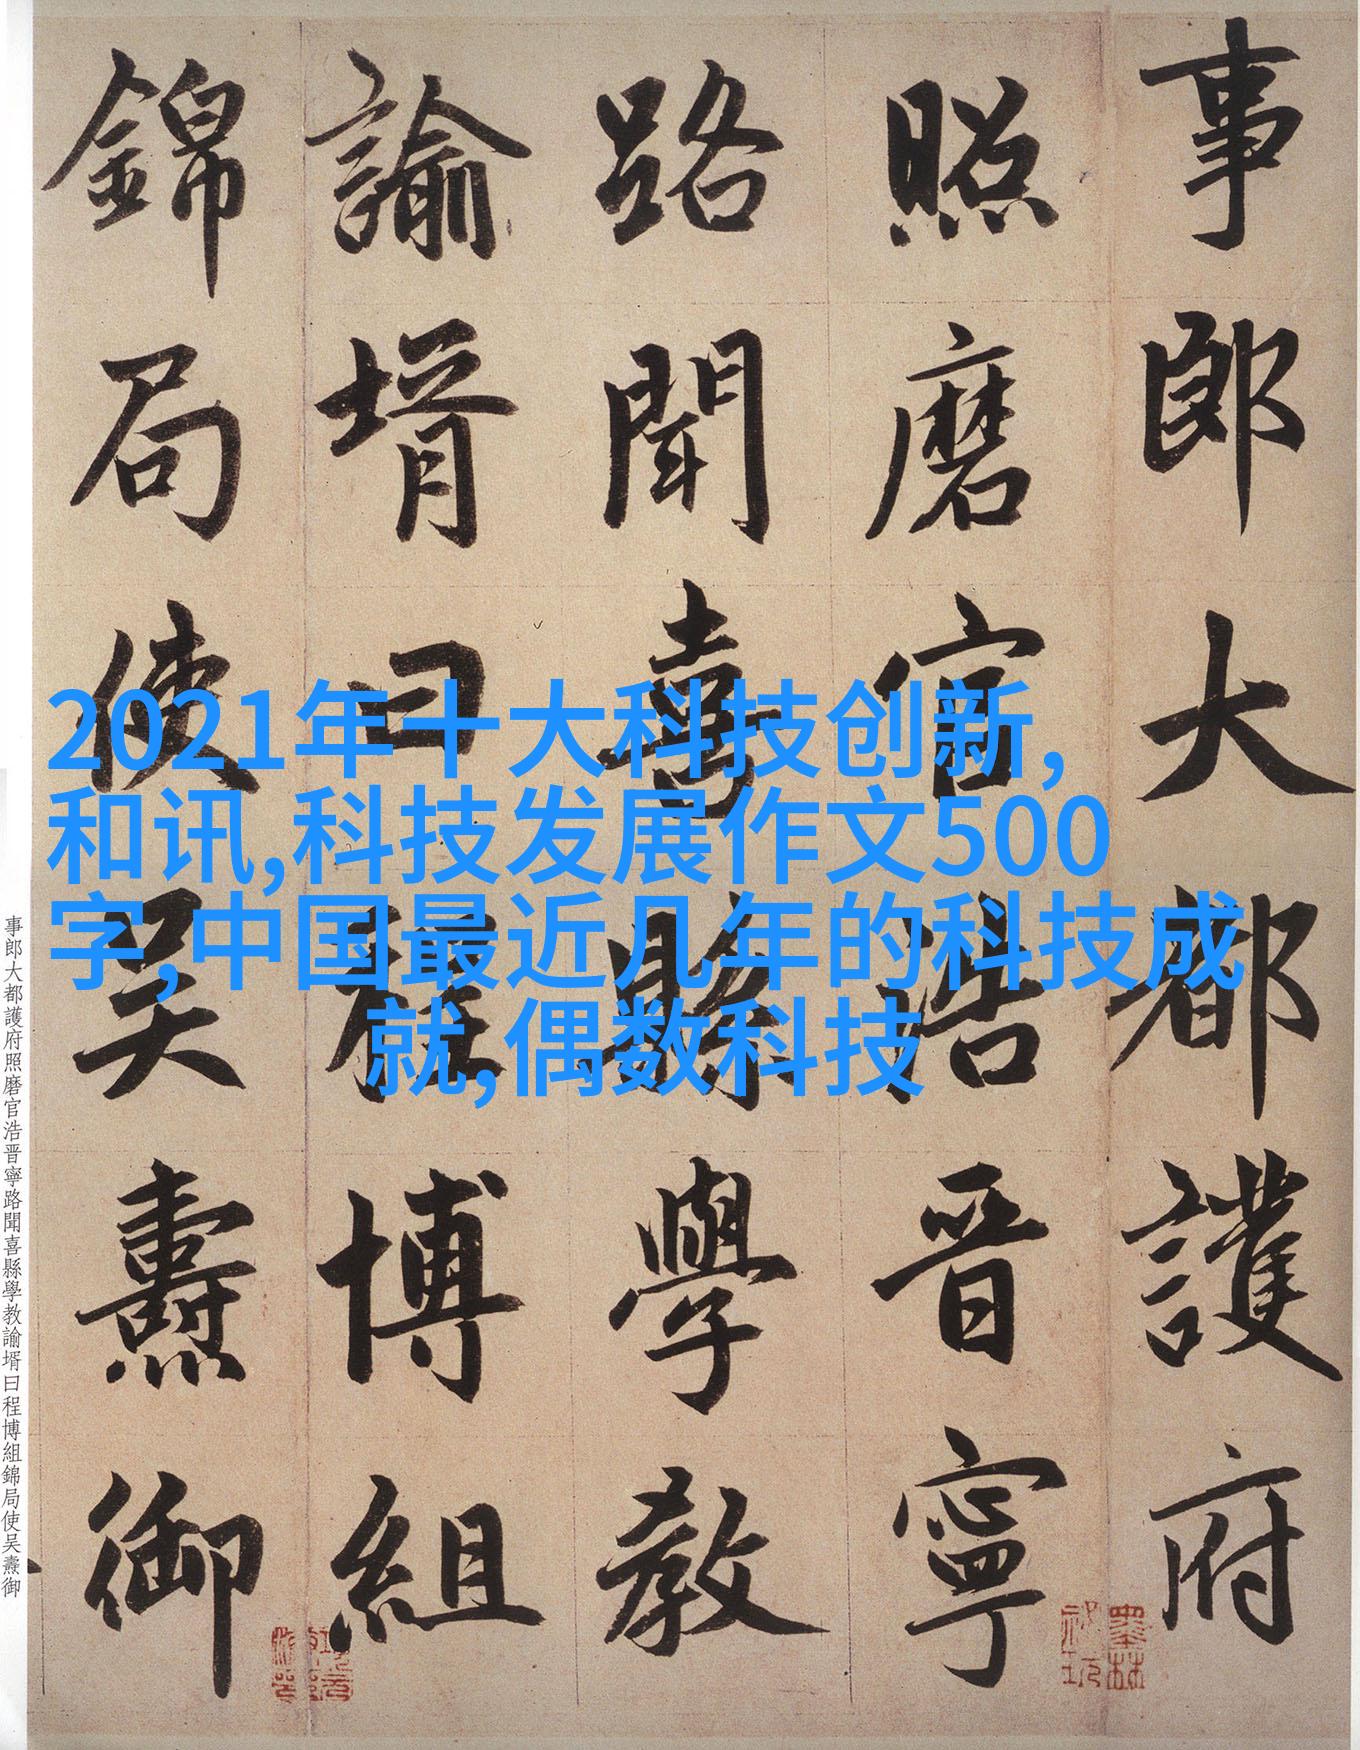 事郎大都護府
照磨官浩晋寧
路聞喜縣學教
諭壻曰程博組
錦局使吴燾御
2021年十大科技创新,
和讯,科技发展作文500
字,中国最近几年的科技成
就,偶数科技
事郎大都護府照磨官浩晋寧路聞喜縣學教諭壻曰程博組錦局使吴燾御